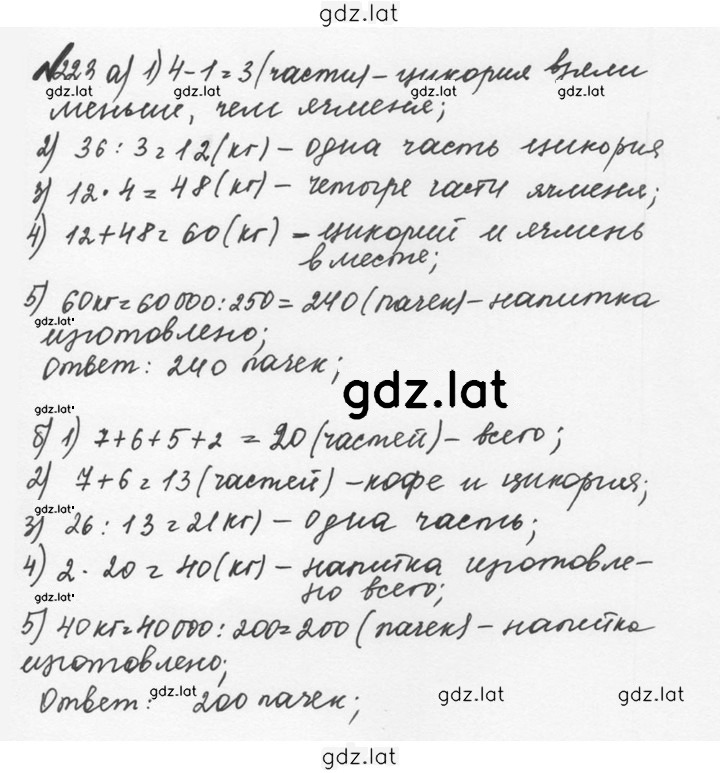 gdz.lat
№223 а) 1) 4-1=3(части)- цикория взяли
gdz.lat gdz.lat gdz.lat gdz.lat
меньше, чем ячменя;
2) 36:3=12(кг)- одна часть цикория
3) 12·4=48(кг)- четыре части ячменя;
4) 12+48=60(кг) - цикорий и ячмень
вместе;
5) 60кг=60000:250=240(пачек)-напитка
gdz.lat
изготовлено;
Ответ: 240 пачек;
gdz.lat
gdz.lat
б) 1) 7+6+5+2=20(частей)- всего;
2) 7+6=13(частей)-кофе и цикория;
gdz.lat
3) 26:13=2(кг)- одна часть;
4) 2·20=40(кг)- напитка изготовле-
но всего;
gdz.lat
5) 40кг=40000:200=200(пачек)- напитка
изготовлено;
Ответ: 200 пачек;
gdz.lat gdz.lat gdz.lat
gdz.lat